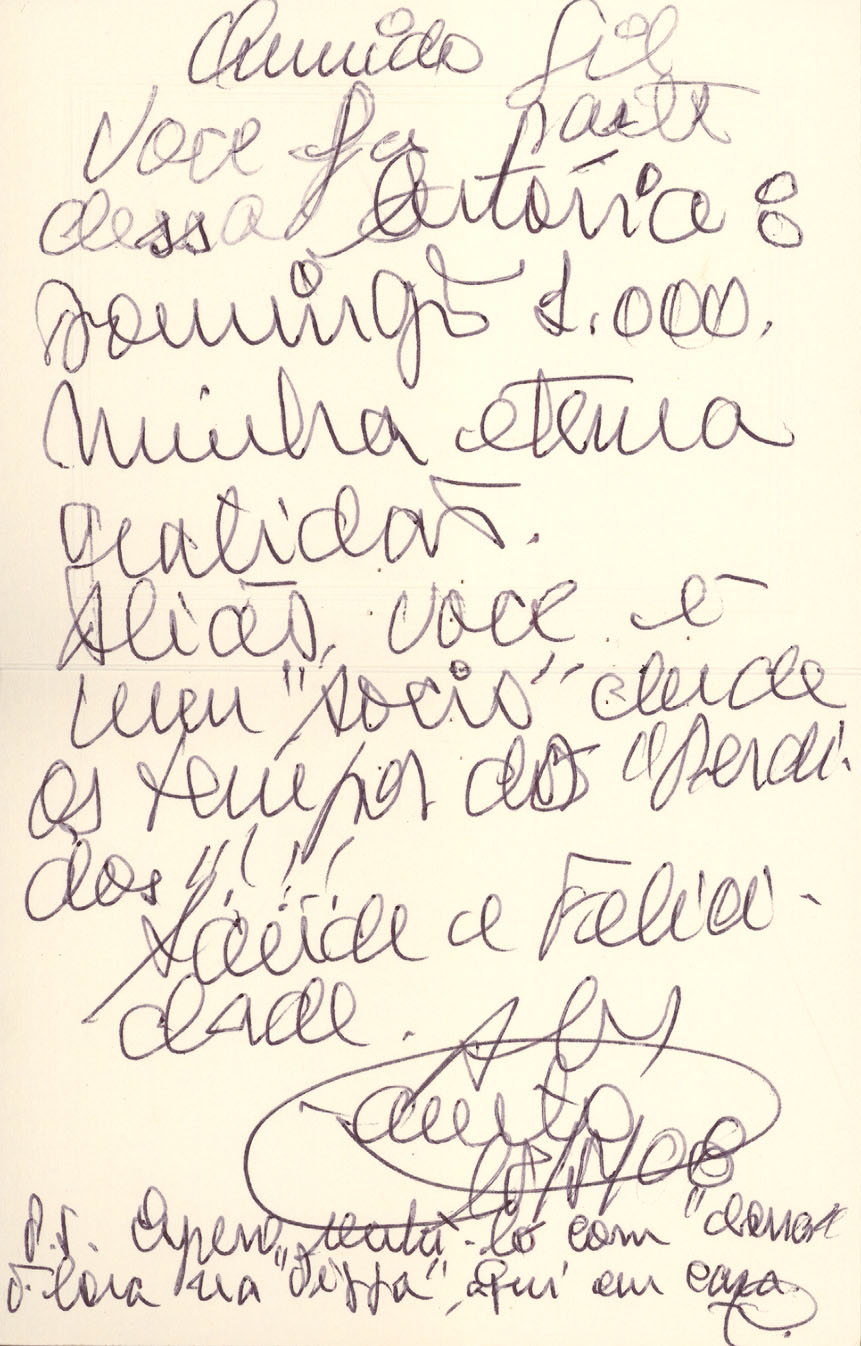 Querido Gil
Você faz parte
dessa história:
Domingo 1.000.
Minha eterna
gratidão.
Aliás, você é
meu "sócio" desde
os tempos dos "Perdi-
dos"!!!
Saúde e Felici-
dade.
08
P.S. Espero - lo com "dona"
Flora na "pizza", aqui em casa.